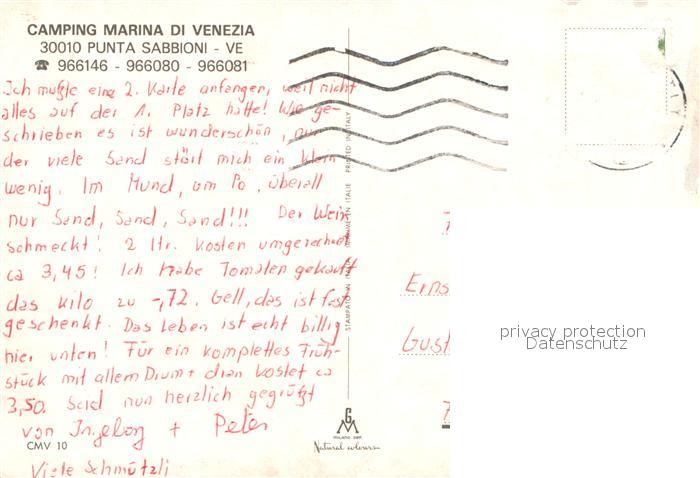 CAMPING MARINA DI VENEZIA
30010 PUNTA SABBIONI - VE
☎ 966146 - 966080 - 966081
Ich mußte eine 2. Karte anfangen, weil nicht
alles auf der 1. Platz hatte! Wie ge-
schrieben es ist wunderschön, nur
der viele Sand stört mich ein klein
wenig. Im Mund, am Po, überall
nur Sand, Sand, Sand!!! Der Wein
schmeckt! 2 ltr. kosten umgerechnet
ca 3,45! Ich habe Tomaten gekauft
das Kilo zu -,72. Gell, das ist fast
geschenkt. Das Leben ist echt billig
hier unten! Für ein komplettes Früh-
stück mit allem Drum + dran kostet ca
3,50. Seid nun herzlich gegrüßt
von Ingeborg + Peter
CMV 10
Viele Schmützli
STAMPATO IN ITALIA IMPRIMÉ EN ITALIE PRINTED IN ITALY
GM
MILANO
Natural colours
Erns
Gust
7
privacy protection
Datenschutz